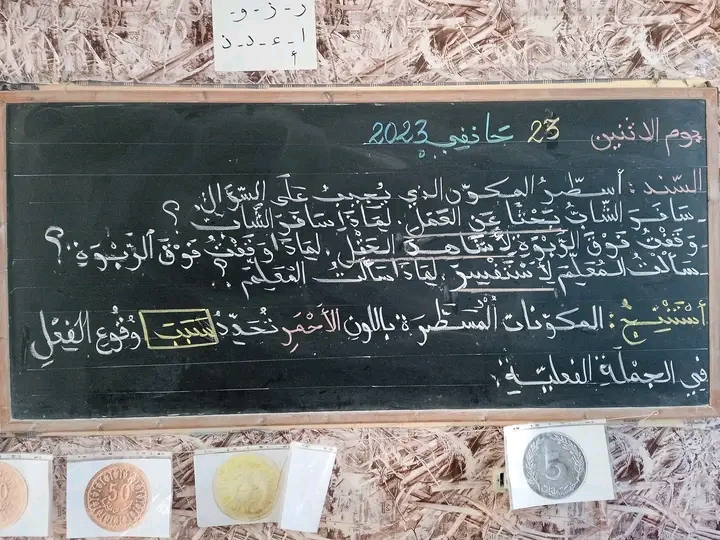 ر - ز - و -
أ - ء - د - ذ
أ
يوم الاثنين 23 جانفي 2023
السّند : أسطّرُ المكوّن الذي يُجيبُ عَلَى السّؤال
- سَافَرَ الشّابُّ بَحْثًا عَنِ العَمَلِ. لِمَاذَا سَافَرَ الشَّابُّ ؟
- وَقَفْتُ فَوْقَ الرَّبْوَةِ لِأُشَاهِدَ الحَقْلَ. لِمَاذَا وَقَفْتُ فَوْقَ الرَّبْوَةِ ؟
- سَأَلْتُ المُعَلِّمَ لِأَسْتَفْسِرَ. لِمَاذَا سَأَلْتُ المُعَلِّمَ ؟
أسْتَنْتِجُ : المكوّنات المُسَطّرَة باللون الأحْمَرِ تُحَدِّدُ سَبَبَ وُقُوعِ الفِعْلِ
في الجملَةِ الفعليّةِ.
50
5